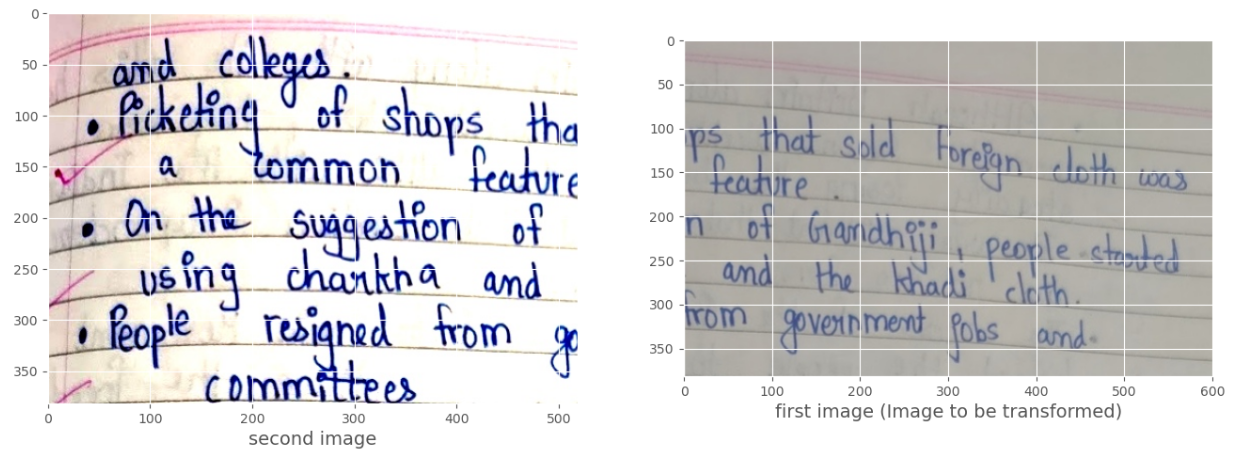 0
50
100
150
200
250
300
350
and colleges.
• Picketing of shops tha
a common feature
• On the suggestion of
using charkha and
• People resigned from go
committees
0 100 200 300 400 500
second image
0
50
100
150
200
250
300
350
ps that sold Foreign cloth was
feature.
n of Gandhiji, people started
and the khadi cloth.
from government jobs and
0 100 200 300 400 500 600
first image (Image to be transformed)